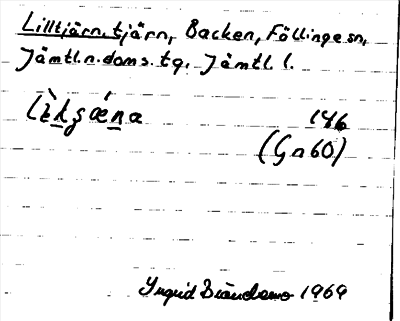 Lilltjärn, tjärn, Backen, Föllinge sn,
Jämtl. n. doms. tg. Jämtl. l.
146
(Gn 60)
Ingrid 1969